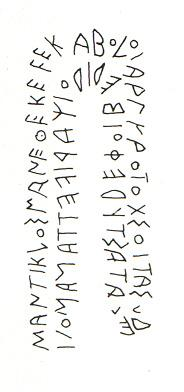 ΜΑΝΤΙΚΛΟΣΜΑΝΕΘΕΚΕϜΕΚΑΒΟΛΟΙΑΡΓΥΡΟΤΟΧΣΟΙΤΑΣΔ
ΔΕΚΑΤΑΣΤΥΔΕΦΟΙΒΕΔΙΔΟΙΧΑΡΙϜΕΤΤΑΝΑΜΟΙ